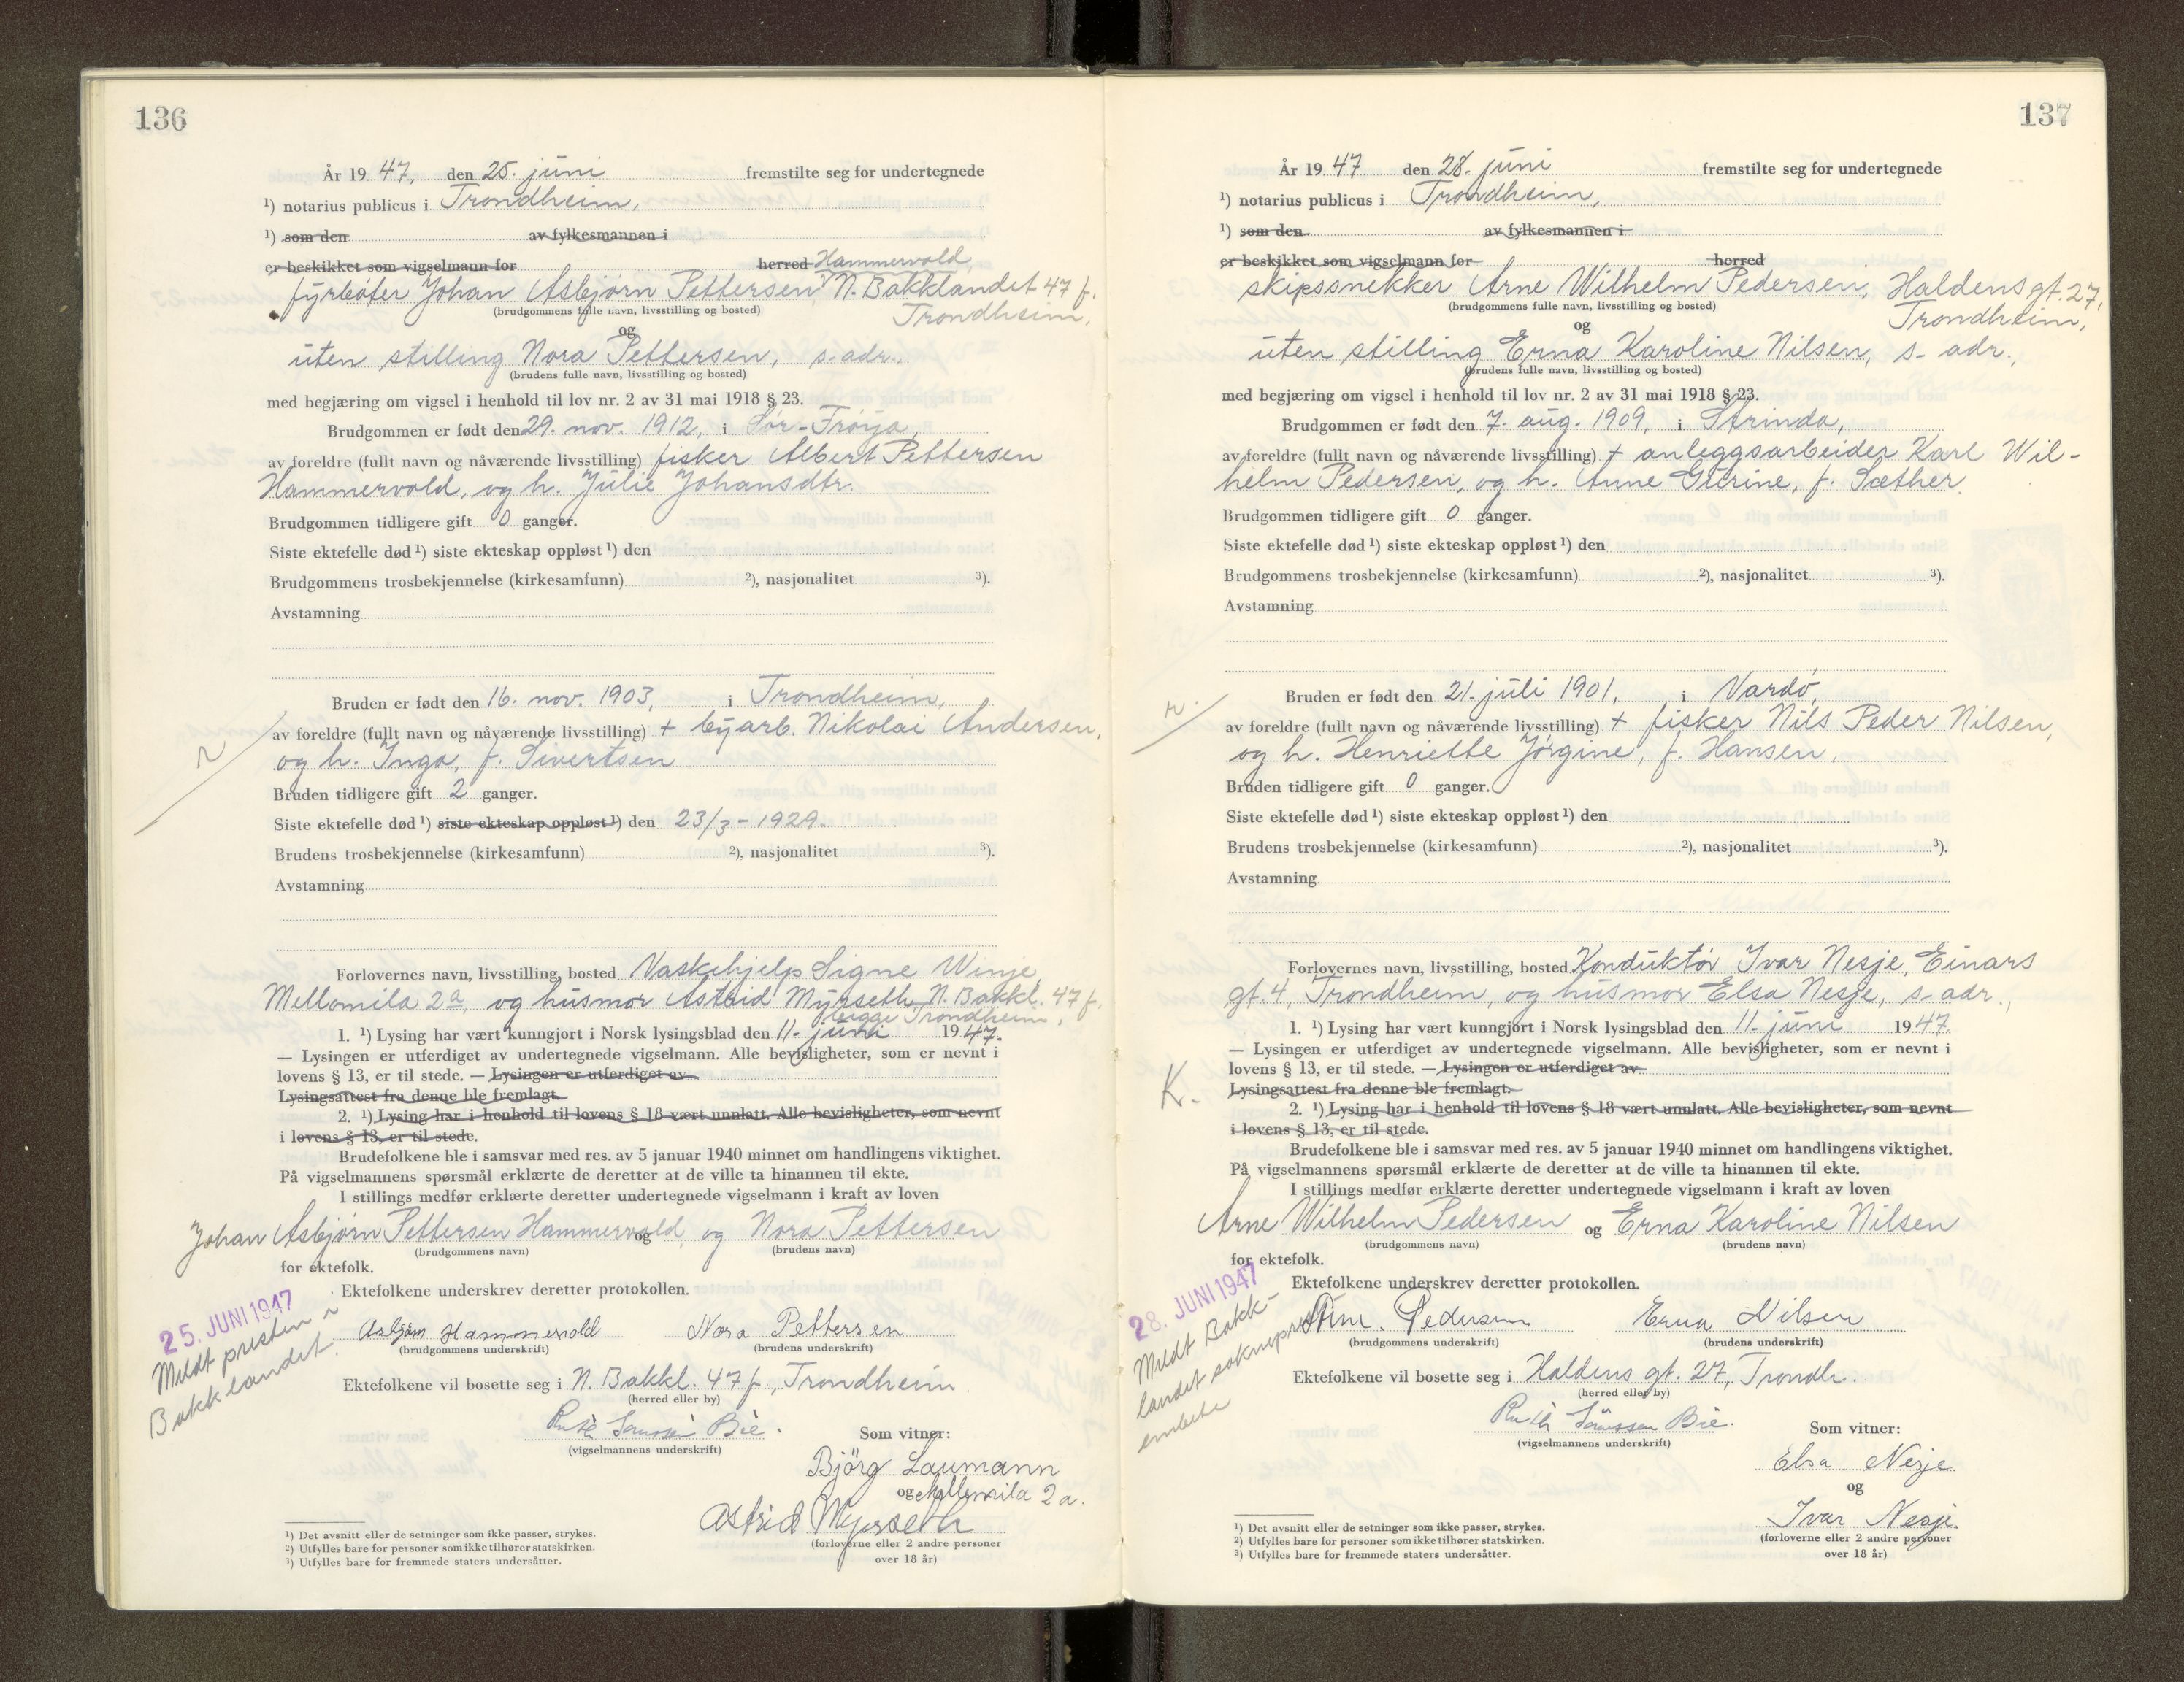 136
År 19 47, den 25. juni fremstilte seg for undertegnede
¹) notarius publicus i Trondheim,
¹) som den av fylkesmannen i
er beskikket som vigselmann for herred Hammervold,
fyrbøter Johan Asbjørn Pettersen N. Bakklandet 47 f.
(brudgommens fulle navn, livsstilling og bosted) Trondheim,
og
uten stilling Nora Pettersen, s. adr.,
(brudens fulle navn, livsstilling og bosted)
med begjæring om vigsel i henhold til lov nr. 2 av 31 mai 1918 § 23.
Brudgommen er født den 29. nov. 1912, i Sør-Frøya,
av foreldre (fullt navn og nåværende livsstilling) fisker Albert Pettersen
Hammervold, og h. Julie Johansdtr.
Brudgommen tidligere gift 0 ganger.
Siste ektefelle død ¹) siste ekteskap oppløst ¹) den
Brudgommens trosbekjennelse (kirkesamfunn) ²), nasjonalitet ³).
Avstamning
Bruden er født den 16. nov. 1903, i Trondheim,
av foreldre (fullt navn og nåværende livsstilling) + byarb. Nikolai Andersen,
og h. Inga, f. Sivertsen
Bruden tidligere gift 2 ganger.
Siste ektefelle død ¹) siste ekteskap oppløst ¹) den 23/3 - 1929.
Brudens trosbekjennelse (kirkesamfunn) ²), nasjonalitet ³).
Avstamning
Forlovernes navn, livsstilling, bosted Vaskehjelp Signe Winje
Mellomila 2a, og husmor Astrid Myrseth, N. Bakkl. 47 f.
begge Trondheim,
1. ¹) Lysing har vært kunngjort i Norsk lysingsblad den 11. juni 1947.
— Lysingen er utferdiget av undertegnede vigselmann. Alle bevisligheter, som er nevnt i
lovens § 13, er til stede. — Lysingen er utferdiget av
Lysingsattest fra denne ble fremlagt.
2. ¹) Lysing har i henhold til lovens § 18 vært unnlatt. Alle bevisligheter, som nevnt
i lovens § 13, er til stede.
Brudefolkene ble i samsvar med res. av 5 januar 1940 minnet om handlingens viktighet.
På vigselmannens spørsmål erklærte de deretter at de ville ta hinannen til ekte.
I stillings medfør erklærte deretter undertegnede vigselmann i kraft av loven
Johan Asbjørn Pettersen Hammervold og og Nora Pettersen
(brudgommens navn) (brudens navn)
for ektefolk.
Ektefolkene underskrev deretter protokollen.
25. JUNI 1947
Meldt presten i
Bakklandet.
Asbjørn Hammervold Nora Pettersen
(brudgommens underskrift) (brudens underskrift)
Ektefolkene vil bosette seg i N. Bakkl. 47 f., Trondheim.
(herred eller by)
Ruth Bie.
(vigselmannens underskrift)
Som vitner:
Björg Laumann
og Mellomila 2 a.
Astrid Myrseth
(forloverne eller 2 andre personer
over 18 år)
¹) Det avsnitt eller de setninger som ikke passer, strykes.
²) Utfylles bare for personer som ikke tilhører statskirken.
³) Utfylles bare for fremmede staters undersåtter.
137
År 19 47 den 28. juni fremstilte seg for undertegnede
¹) notarius publicus i Trondheim,
¹) som den av fylkesmannen i
er beskikket som vigselmann for herred
skipssnekker Arne Wilhelm Pedersen, Haldens gt. 27,
(brudgommens fulle navn, livsstilling og bosted) Trondheim,
og
uten stilling Erna Karoline Nilsen, s. adr.,
(brudens fulle navn, livsstilling og bosted)
med begjæring om vigsel i henhold til lov nr. 2 av 31 mai 1918 § 23.
Brudgommen er født den 7. aug. 1909, i Strinda,
av foreldre (fullt navn og nåværende livsstilling) + anleggsarbeider Karl Wil-
helm Pedersen, og h. Anne Gurine, f. Sæther.
Brudgommen tidligere gift 0 ganger.
Siste ektefelle død ¹) siste ekteskap oppløst ¹) den
Brudgommens trosbekjennelse (kirkesamfunn) ²), nasjonalitet ³).
Avstamning
Bruden er født den 21. juli 1901, i Vardø,
av foreldre (fullt navn og nåværende livsstilling) + fisker Nils Peder Nilsen,
og h. Henriette Jørgine, f. Hansen,
Bruden tidligere gift 0 ganger.
Siste ektefelle død ¹) siste ekteskap oppløst ¹) den
Brudens trosbekjennelse (kirkesamfunn) ²), nasjonalitet ³).
Avstamning
Forlovernes navn, livsstilling, bosted Konduktør Ivar Nesje, Einars
gt. 4, Trondheim, og husmor Elsa Nesje, s. adr.,
1. ¹) Lysing har vært kunngjort i Norsk lysingsblad den 11. juni 1947.
— Lysingen er utferdiget av undertegnede vigselmann. Alle bevisligheter, som er nevnt i
lovens § 13, er til stede. — Lysingen er utferdiget av
K.
Lysingsattest fra denne ble fremlagt.
2. ¹) Lysing har i henhold til lovens § 18 vært unnlatt. Alle bevisligheter, som nevnt
i lovens § 13, er til stede.
Brudefolkene ble i samsvar med res. av 5 januar 1940 minnet om handlingens viktighet.
På vigselmannens spørsmål erklærte de deretter at de ville ta hinannen til ekte.
I stillings medfør erklærte deretter undertegnede vigselmann i kraft av loven
Arne Wilhelm Pedersen og Erna Karoline Nilsen
(brudgommens navn) (brudens navn)
for ektefolk.
Ektefolkene underskrev deretter protokollen.
28. JUNI 1947
Meldt Bakk-
landet sokneprest
embete
Arne Pedersen Erna Nilsen
(brudgommens underskrift) (brudens underskrift)
Ektefolkene vil bosette seg i Haldens gt. 27, Trondh.
(herred eller by)
Ruth Bie.
(vigselmannens underskrift)
Som vitner:
Elsa Nesje
og
Ivar Nesje.
(forloverne eller 2 andre personer
over 18 år)
¹) Det avsnitt eller de setninger som ikke passer, strykes.
²) Utfylles bare for personer som ikke tilhører statskirken.
³) Utfylles bare for fremmede staters undersåtter.